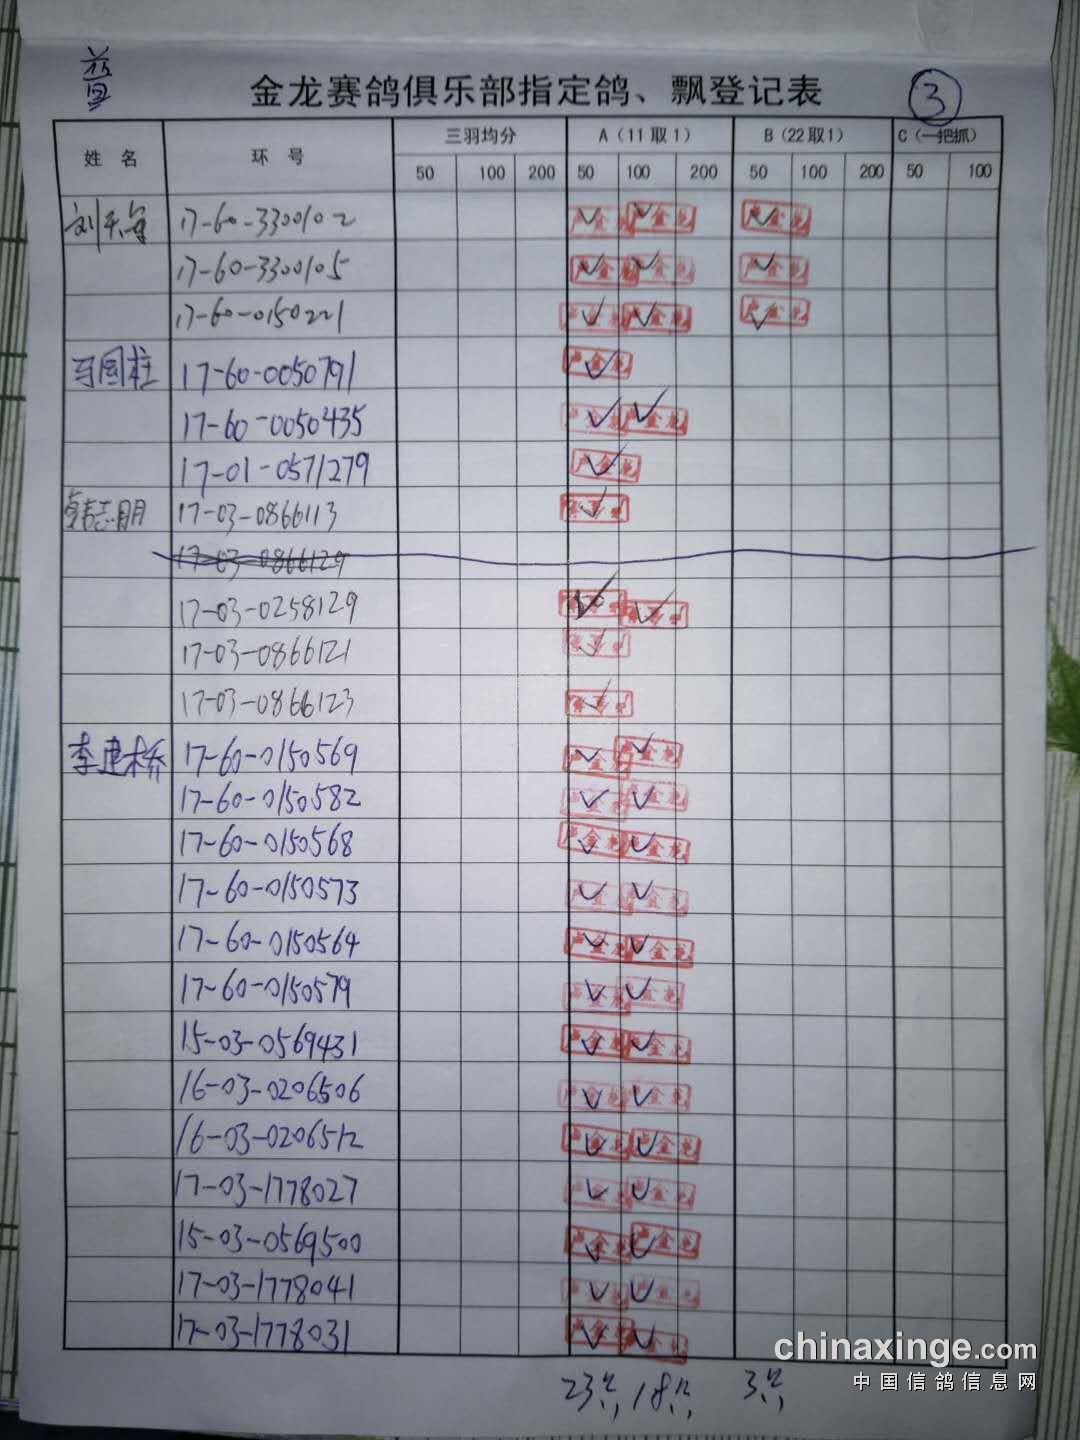 蓝
金龙赛鸽俱乐部指定鸽、飘登记表 3
姓名 环号 三羽均分 A(11取1) B(22取1) C(一把抓)
50 100 200 50 100 200 50 100 200 50 100
17-60-3300102 ✓ ✓ ✓
17-60-3300105 ✓ ✓ ✓
17-60-0150221 ✓ ✓ ✓
马国柱 17-60-0050791 ✓
17-60-0050435 ✓ ✓
17-01-0571279 ✓
17-03-0866113 ✓
17-03-0866129
17-03-0258129 ✓ ✓
17-03-0866121 ✓
17-03-0866123 ✓
李建桥 17-60-0150569 ✓ ✓
17-60-0150582 ✓ ✓
17-60-0150568 ✓ ✓
17-60-0150573 ✓ ✓
17-60-0150564 ✓ ✓
17-60-0150579 ✓ ✓
15-03-0569431 ✓ ✓
16-03-0206506 ✓ ✓
16-03-0206512 ✓ ✓
17-03-1778027 ✓ ✓
15-03-0569500 ✓ ✓
17-03-1778041 ✓ ✓
17-03-1778031 ✓ ✓
23只, 18只, 3只
chinaxinge.com
中国信鸽信息网